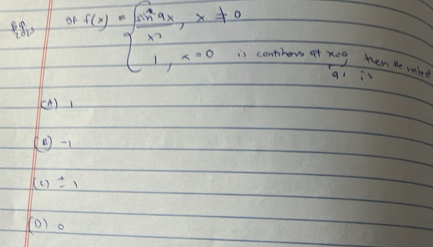 If f(x) = { sin² ax, x ≠ 0
x²
1, x = 0 is continous at x=0 then the value of
'a' is
(A) 1
(B) -1
(C) ± 1
(D) 0